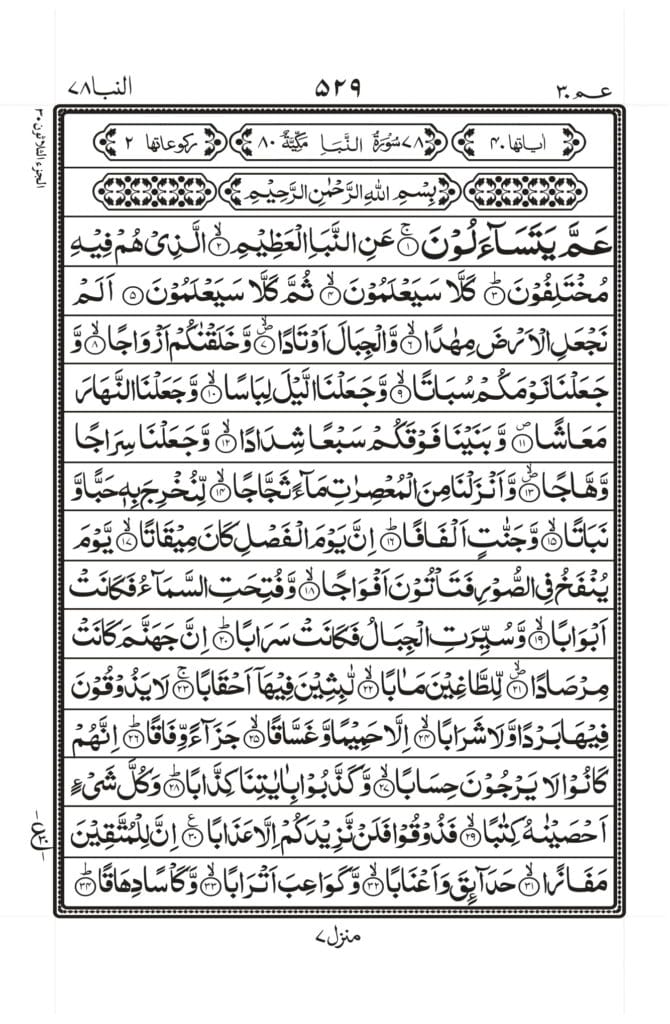 عم ٣٠
٥٢٩
النبا ٧٨
الجزء الثلاثون ٣٠
اٰیاتها ٤٠
٧٨ سُوْرَةُ النَّبَاِ مَكِّيَّةٌ ٨٠
ركوعاتها ٢
بِسْمِ اللهِ الرَّحْمٰنِ الرَّحِيْمِ
عَمَّ يَتَسَآءَلُوْنَ ۚ﴿١﴾ عَنِ النَّبَاِ الْعَظِيْمِ ۙ﴿٢﴾ الَّذِىْ هُمْ فِيْهِ
مُخْتَلِفُوْنَ ؕ﴿٣﴾ كَلَّا سَيَعْلَمُوْنَ ۙ﴿٤﴾ ثُمَّ كَلَّا سَيَعْلَمُوْنَ ﴿٥﴾ اَلَمْ
نَجْعَلِ الْاَرْضَ مِهٰدًا ۙ﴿٦﴾ وَّالْجِبَالَ اَوْتَادًا ۪ۙ﴿٧﴾ وَّخَلَقْنٰكُمْ اَزْوَاجًا ۙ﴿٨﴾ وَّ
جَعَلْنَا نَوْمَكُمْ سُبَاتًا ۙ﴿٩﴾ وَّجَعَلْنَا الَّيْلَ لِبَاسًا ۙ﴿١٠﴾ وَّجَعَلْنَا النَّهَارَ
مَعَاشًا ۪﴿١١﴾ وَّبَنَيْنَا فَوْقَكُمْ سَبْعًا شِدَادًا ۙ﴿١٢﴾ وَّجَعَلْنَا سِرَاجًا
وَّهَّاجًا ۪ۙ﴿١٣﴾ وَّاَنْزَلْنَا مِنَ الْمُعْصِرٰتِ مَآءً ثَجَّاجًا ۙ﴿١٤﴾ لِّنُخْرِجَ بِهٖ حَبًّا وَّ
نَبَاتًا ۙ﴿١٥﴾ وَّجَنّٰتٍ اَلْفَافًا ؕ﴿١٦﴾ اِنَّ يَوْمَ الْفَصْلِ كَانَ مِيْقَاتًا ۙ﴿١٧﴾ يَّوْمَ
يُنْفَخُ فِى الصُّوْرِ فَتَاْتُوْنَ اَفْوَاجًا ۙ﴿١٨﴾ وَّفُتِحَتِ السَّمَآءُ فَكَانَتْ
اَبْوَابًا ۙ﴿١٩﴾ وَّسُيِّرَتِ الْجِبَالُ فَكَانَتْ سَرَابًا ؕ﴿٢٠﴾ اِنَّ جَهَنَّمَ كَانَتْ
مِرْصَادًا ۪ۙ﴿٢١﴾ لِّلطَّاغِيْنَ مَاٰبًا ۙ﴿٢٢﴾ لّٰبِثِيْنَ فِيْهَآ اَحْقَابًا ۚ﴿٢٣﴾ لَا يَذُوْقُوْنَ
فِيْهَا بَرْدًا وَّلَا شَرَابًا ۙ﴿٢٤﴾ اِلَّا حَمِيْمًا وَّغَسَّاقًا ۙ﴿٢٥﴾ جَزَآءً وِّفَاقًا ؕ﴿٢٦﴾ اِنَّهُمْ
كَانُوْا لَا يَرْجُوْنَ حِسَابًا ۙ﴿٢٧﴾ وَّكَذَّبُوْا بِاٰيٰتِنَا كِذَّابًا ؕ﴿٢٨﴾ وَكُلَّ شَىْءٍ
اَحْصَيْنٰهُ كِتٰبًا ۙ﴿٢٩﴾ فَذُوْقُوْا فَلَنْ نَّزِيْدَكُمْ اِلَّا عَذَابًا ﴿٣٠﴾ اِنَّ لِلْمُتَّقِيْنَ
مَفَازًا ۙ﴿٣١﴾ حَدَآئِقَ وَاَعْنَابًا ۙ﴿٣٢﴾ وَّكَوَاعِبَ اَتْرَابًا ۙ﴿٣٣﴾ وَّكَاْسًا دِهَاقًا ؕ﴿٣٤﴾
منزل ٧